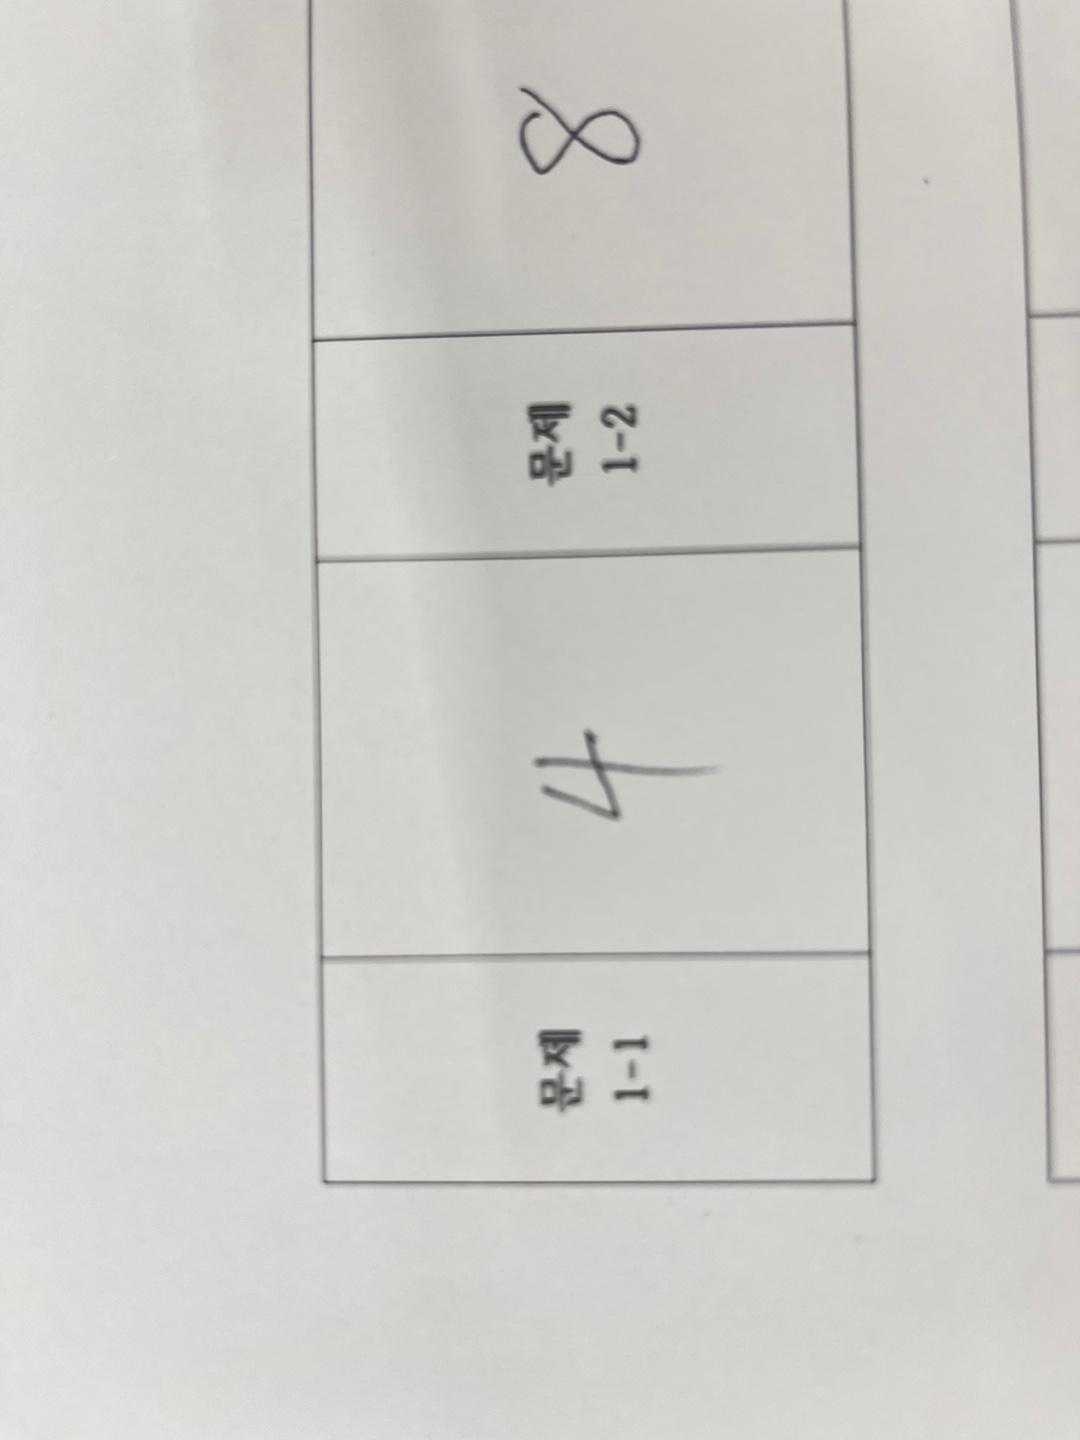 문제
1-1
4
문제
1-2
8